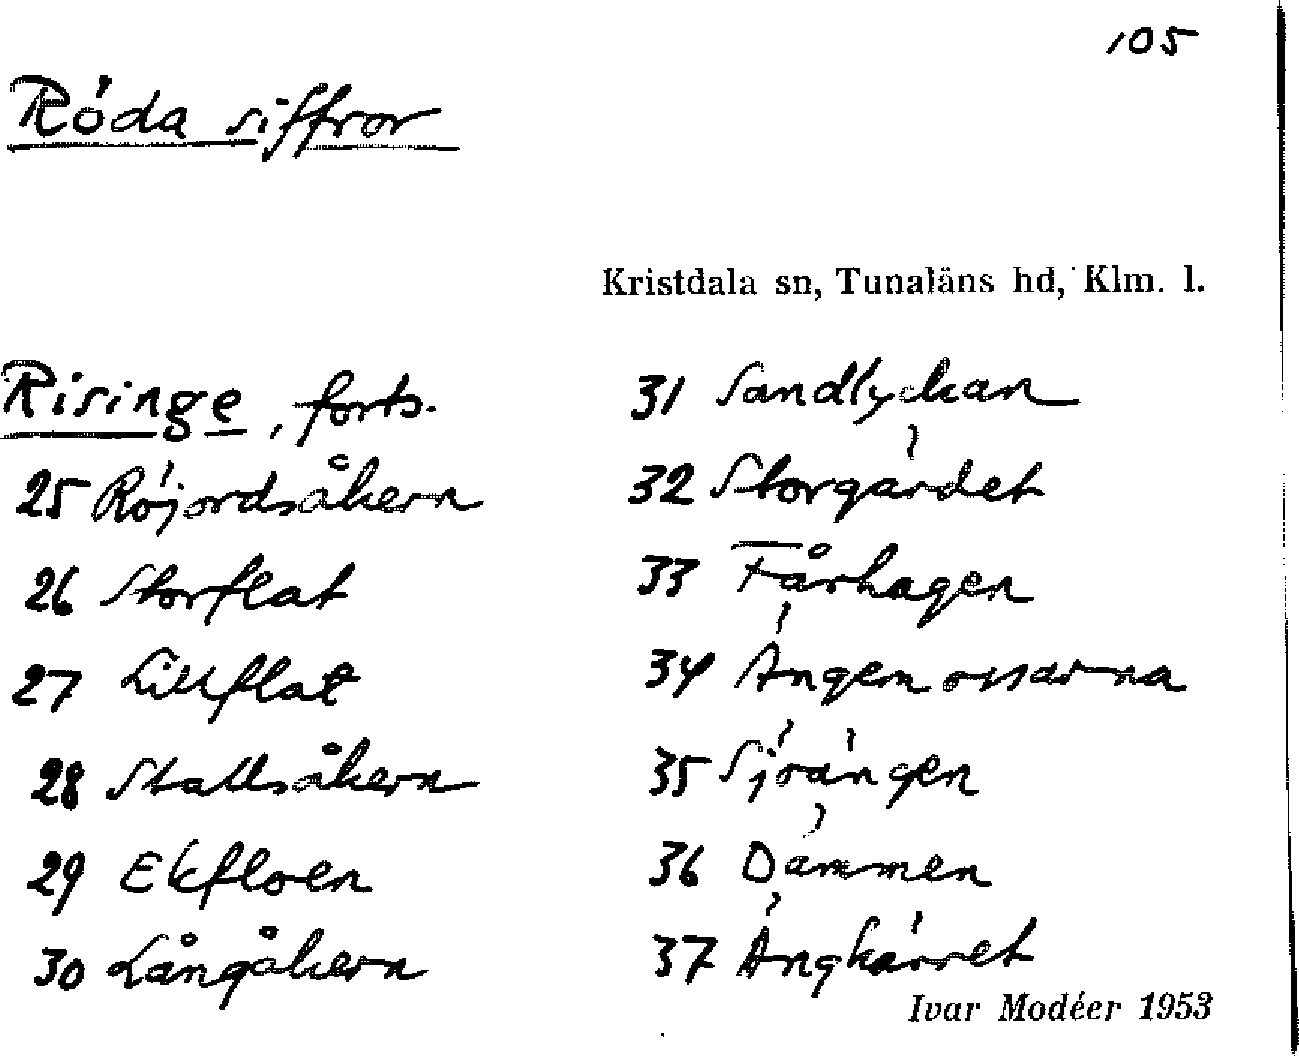 105
Röda siffror
Kristdala sn, Tunaläns hd, Klm. l.
Risinge, forts.
25 Röjordsåkern
26 Storflat
27 Lillflat
28 Stallsåkern
29 Ekfloen
30 Långåkern
31 Sandlyckan
32 Storgärdet
33 Fårhagen
34 Ängemossarna
35 Sjöängen
36 Dämmen
37 Ängkärret
Ivar Modéer 1953